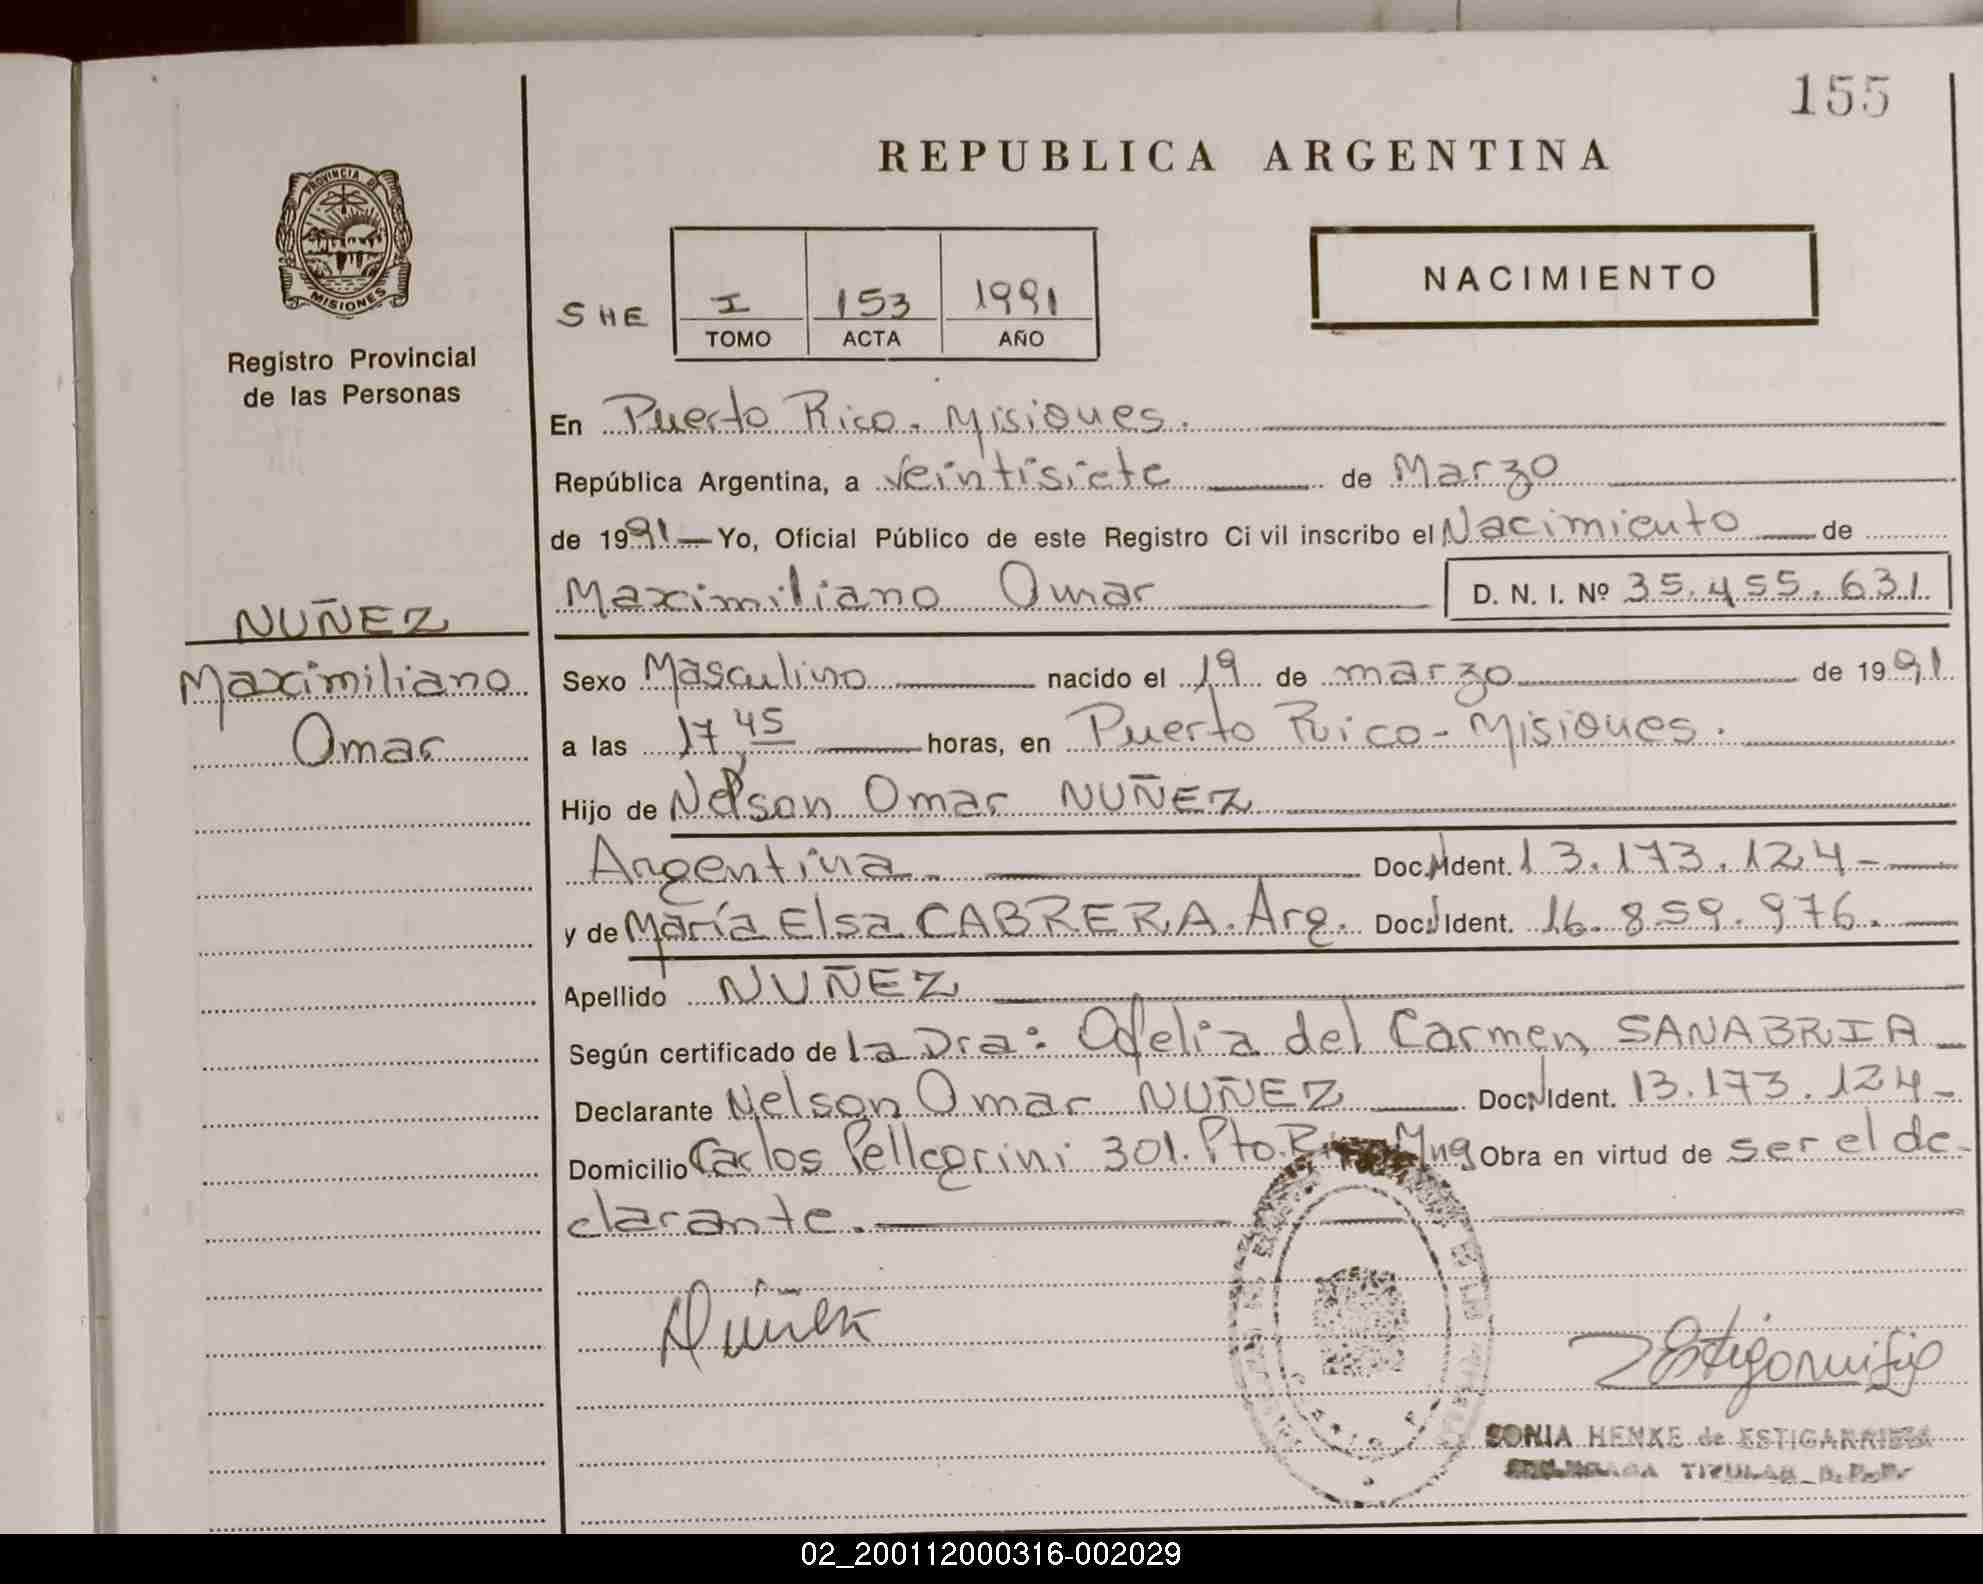 155
REPUBLICA ARGENTINA
PROVINCIA DE
MISIONES
Registro Provincial
de las Personas
SHE
I 153 1991
TOMO ACTA AÑO
NACIMIENTO
En Puerto Rico. Misiones.
República Argentina, a veintisiete de Marzo
de 1991 Yo, Oficial Público de este Registro Civil inscribo el Nacimiento de
Maximiliano Omar D. N. I. Nº 35.455.631
NUÑEZ
Maximiliano
Omar
Sexo Masculino nacido el 19 de marzo de 1991
a las 17,45 horas, en Puerto Rico - Misiones.
Hijo de Nelson Omar NUÑEZ
Argentina. Doc. Ident. 13.173.124-
y de María Elsa CABRERA. Arg. Doc. Ident. 16.859.976.
Apellido NUÑEZ
Según certificado de la Dra: Ofelia del Carmen SANABRIA
Declarante Nelson Omar NUÑEZ Doc. Ident. 13.173.124-
Domicilio Carlos Pellegrini 301. Pto. Mns Obra en virtud de ser el de-
clarante.
SONIA HENKE de ESTIGARRIBIA
TITULAR
02_200112000316-002029